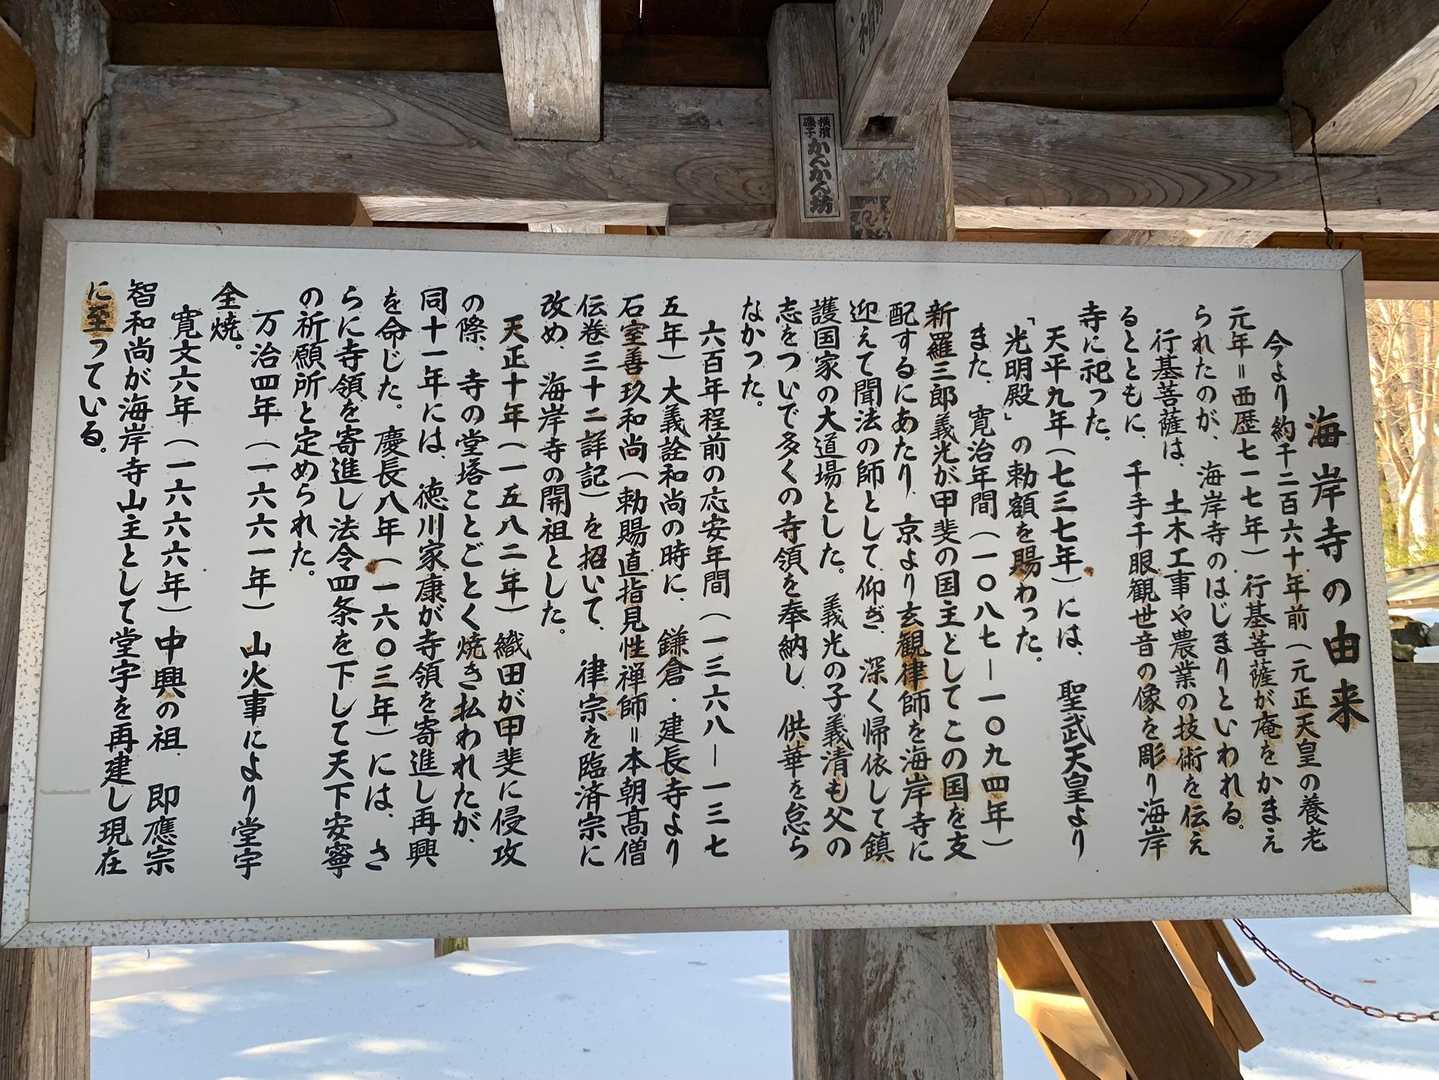 海岸寺の由来
今より約千二百六十年前（元正天皇の養老
元年＝西歴七一七年）行基菩薩が庵をかまえ
られたのが、海岸寺のはじまりといわれる。
行基菩薩は、土木工事や農業の技術を伝え
るとともに、千手千眼観世音の像を彫り海岸
寺に祀った。
天平九年（七三七年）には、聖武天皇より
「光明殿」の勅額を賜わった。
また、寛治年間（一〇八七―一〇九四年）
新羅三郎義光が甲斐の国主としてこの国を支
配するにあたり、京より玄観律師を海岸寺に
迎えて聞法の師として仰ぎ、深く帰依して鎮
護国家の大道場とした。義光の子義清も父の
志をついで多くの寺領を奉納し、供華を怠ら
なかった。
六百年程前の応安年間（一三六八―一三七
五年）大義詮和尚の時に、鎌倉・建長寺より
石室善玖和尚（勅賜直指見性禅師＝本朝高僧
伝巻三十二詳記）を招いて、律宗を臨済宗に
改め、海岸寺の開祖とした。
天正十年（一五八二年）織田が甲斐に侵攻
の際、寺の堂塔ことごとく焼き払われたが、
同十一年には、徳川家康が寺領を寄進し再興
を命じた。慶長八年（一六〇三年）には、さ
らに寺領を寄進し法令四条を下して天下安寧
の祈願所と定められた。
万治四年（一六六一年）山火事により堂宇
全焼。
寛文六年（一六六六年）中興の祖、即應宗
智和尚が海岸寺山主として堂宇を再建し現在
に至っている。
横濱
磯子
かんかん坊